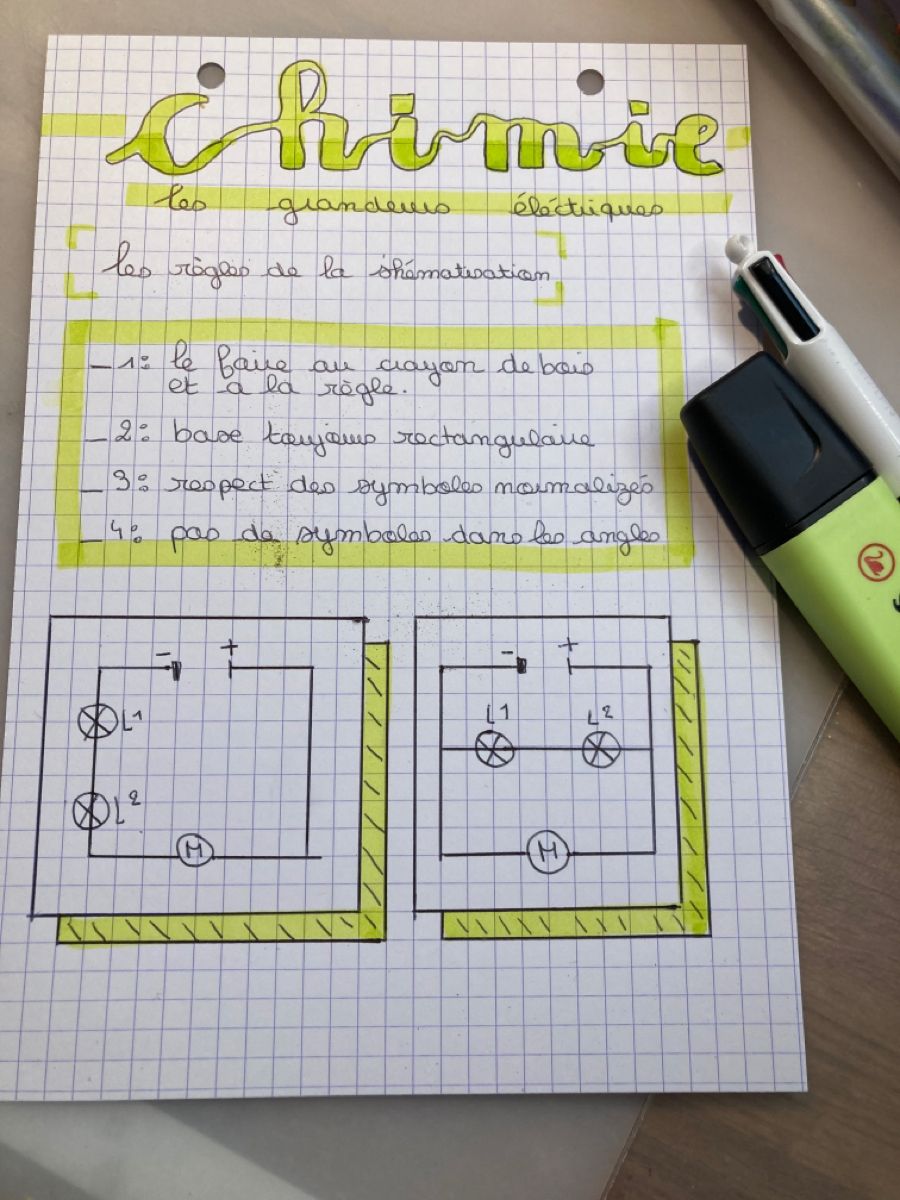 chimie
les grandeurs éléctriques
les règles de la shématisation
- 1: le faire au crayon de bois
et à la règle.
- 2: base toujours rectangulaire
- 3: respect des symboles normalizés
- 4: pas de symboles dans les angles
- +
L1
L2
M
- +
L1 L2
M